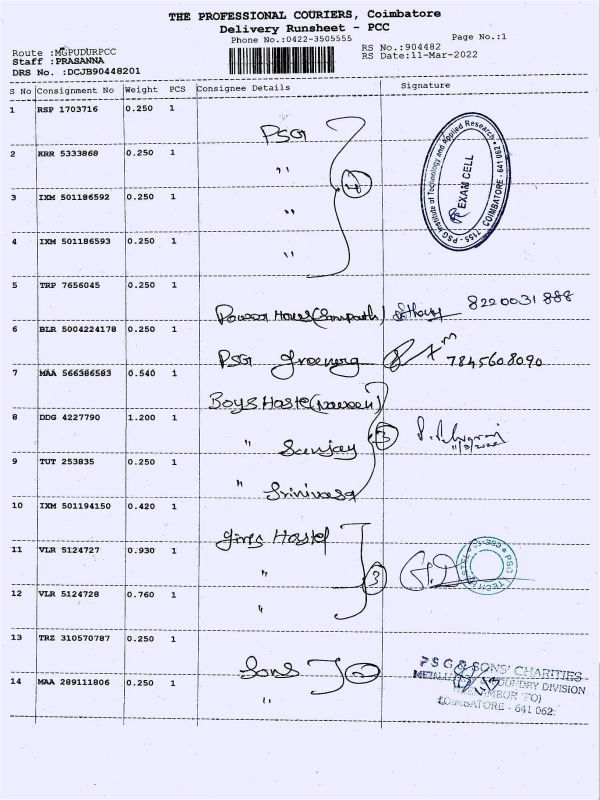 THE PROFESSIONAL COURIERS, Coimbatore
Delivery Runsheet - PCC
Phone No.:0422-3505555
Page No.:1
Route :MGPUDURPCC
RS No.:904482
Staff :PRASANNA
RS Date:11-Mar-2022
DRS No. :DCJB90448201
S No Consignment No Weight PCS Consignee Details Signature
1 RSP 1703716 0.250 1
PSG
2 KRR 5333868 0.250 1
"
4
3 IXM 501186592 0.250 1
"
4 IXM 501186593 0.250 1
"
7155 - PSG Institute of Technology and Applied Research • COIMBATORE - 641 062
EXAM CELL
5 TRP 7656045 0.250 1
Power House (Sampath) 8220031888
6 BLR 5004224178 0.250 1
PSG 7845608090
7 MAA 566386583 0.540 1
Boys Hostel (naveen)
8 DDG 4227790 1.200 1
" Sanjay 3
11/3/2022
9 TUT 253835 0.250 1
" Srinivasa
10 IXM 501194150 0.420 1
girls Hostel
11 VLR 5124727 0.930 1
" 3
12 VLR 5124728 0.760 1
"
13 TRZ 310570787 0.250 1
Sons 2
14 MAA 289111806 0.250 1
"
PSG & SONS' CHARITIES
FOUNDRY DIVISION
(PO)
COIMBATORE - 641 062.